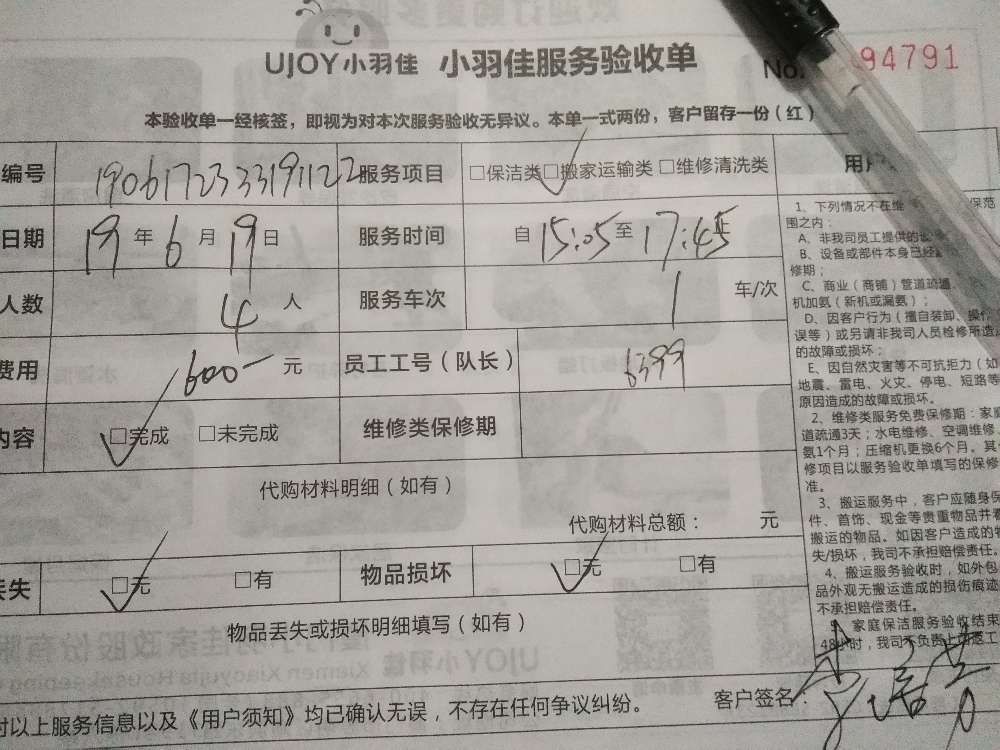 UJOY小羽佳 小羽佳服务验收单 No. 94791
本验收单一经核签，即视为对本次服务验收无异议。本单一式两份，客户留存一份（红）
编号 1906172333191122 服务项目 □保洁类 □搬家运输类 □维修清洗类
日期 19年6月19日 服务时间 自15:05至17:45
人数 4人 服务车次 1 车/次
费用 1600 元 员工工号（队长） 6399
内容 □完成 □未完成 维修类保修期
代购材料明细（如有）
代购材料总额： 元
丢失 □无 □有 物品损坏 □无 □有
物品丢失或损坏明细填写（如有）
对以上服务信息以及《用户须知》均已确认无误，不存在任何争议纠纷。
客户签名：
用户
1、下列情况不在维 保范
围之内：
A、非我司员工提供的
B、设备或部件本身已经
修期；
C、商业（商铺）管道疏通、
机加氨（新机或漏氨）；
D、因客户行为（擅自装卸、操作
误等）或另请非我司人员检修所造
的故障或损坏；
E、因自然灾害等不可抗拒力（如
地震、雷电、火灾、停电、短路等
原因造成的故障或损坏。
2、维修类服务免费保修期：家庭
道疏通3天；水电维修、空调维修、
氨1个月；压缩机更换6个月。其
修项目以服务验收单填写的保修
准。
3、搬运服务中，客户应随身保
件、首饰、现金等贵重物品并看
搬运的物品。如因客户造成的物
失/损坏，我司不承担赔偿责任。
4、搬运服务验收时，如外包
品外观无搬运造成的损伤痕迹
不承担赔偿责任。
家庭保洁服务验收结束
48小时，我司不负责